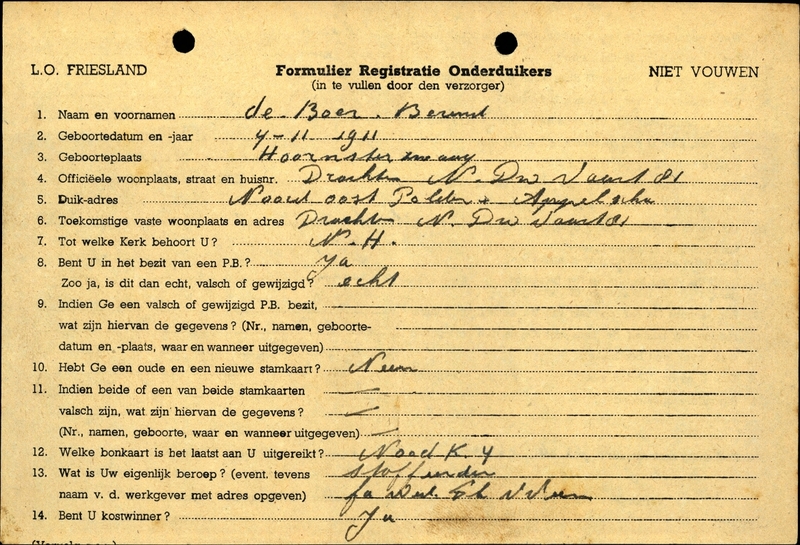 L.O. FRIESLAND Formulier Registratie Onderduikers NIET VOUWEN
(in te vullen door den verzorger)
1. Naam en voornamen de Boer. Berend
2. Geboortedatum en -jaar 7-11-1911
3. Geboorteplaats Hoornsterzwaag
4. Officiëele woonplaats, straat en huisnr. Drachten N. Dw Vaart 81
5. Duik-adres Noord oost Polder + Appelscha
6. Toekomstige vaste woonplaats en adres Drachten N. Dw Vaart 81
7. Tot welke Kerk behoort U? N. H.
8. Bent U in het bezit van een P.B.? Ja
Zoo ja, is dit dan echt, valsch of gewijzigd? echt
9. Indien Ge een valsch of gewijzigd P.B. bezit,
wat zijn hiervan de gegevens? (Nr., namen, geboorte-
datum en -plaats, waar en wanneer uitgegeven)
10. Hebt Ge een oude en een nieuwe stamkaart? Neen
11. Indien beide of een van beide stamkaarten
valsch zijn, wat zijn hiervan de gegevens?
(Nr., namen, geboorte, waar en wanneer uitgegeven)
12. Welke bonkaart is het laatst aan U uitgereikt? Nood K. 4
13. Wat is Uw eigenlijk beroep? (event. tevens
naam v. d. werkgever met adres opgeven) fa
14. Bent U kostwinner? Ja